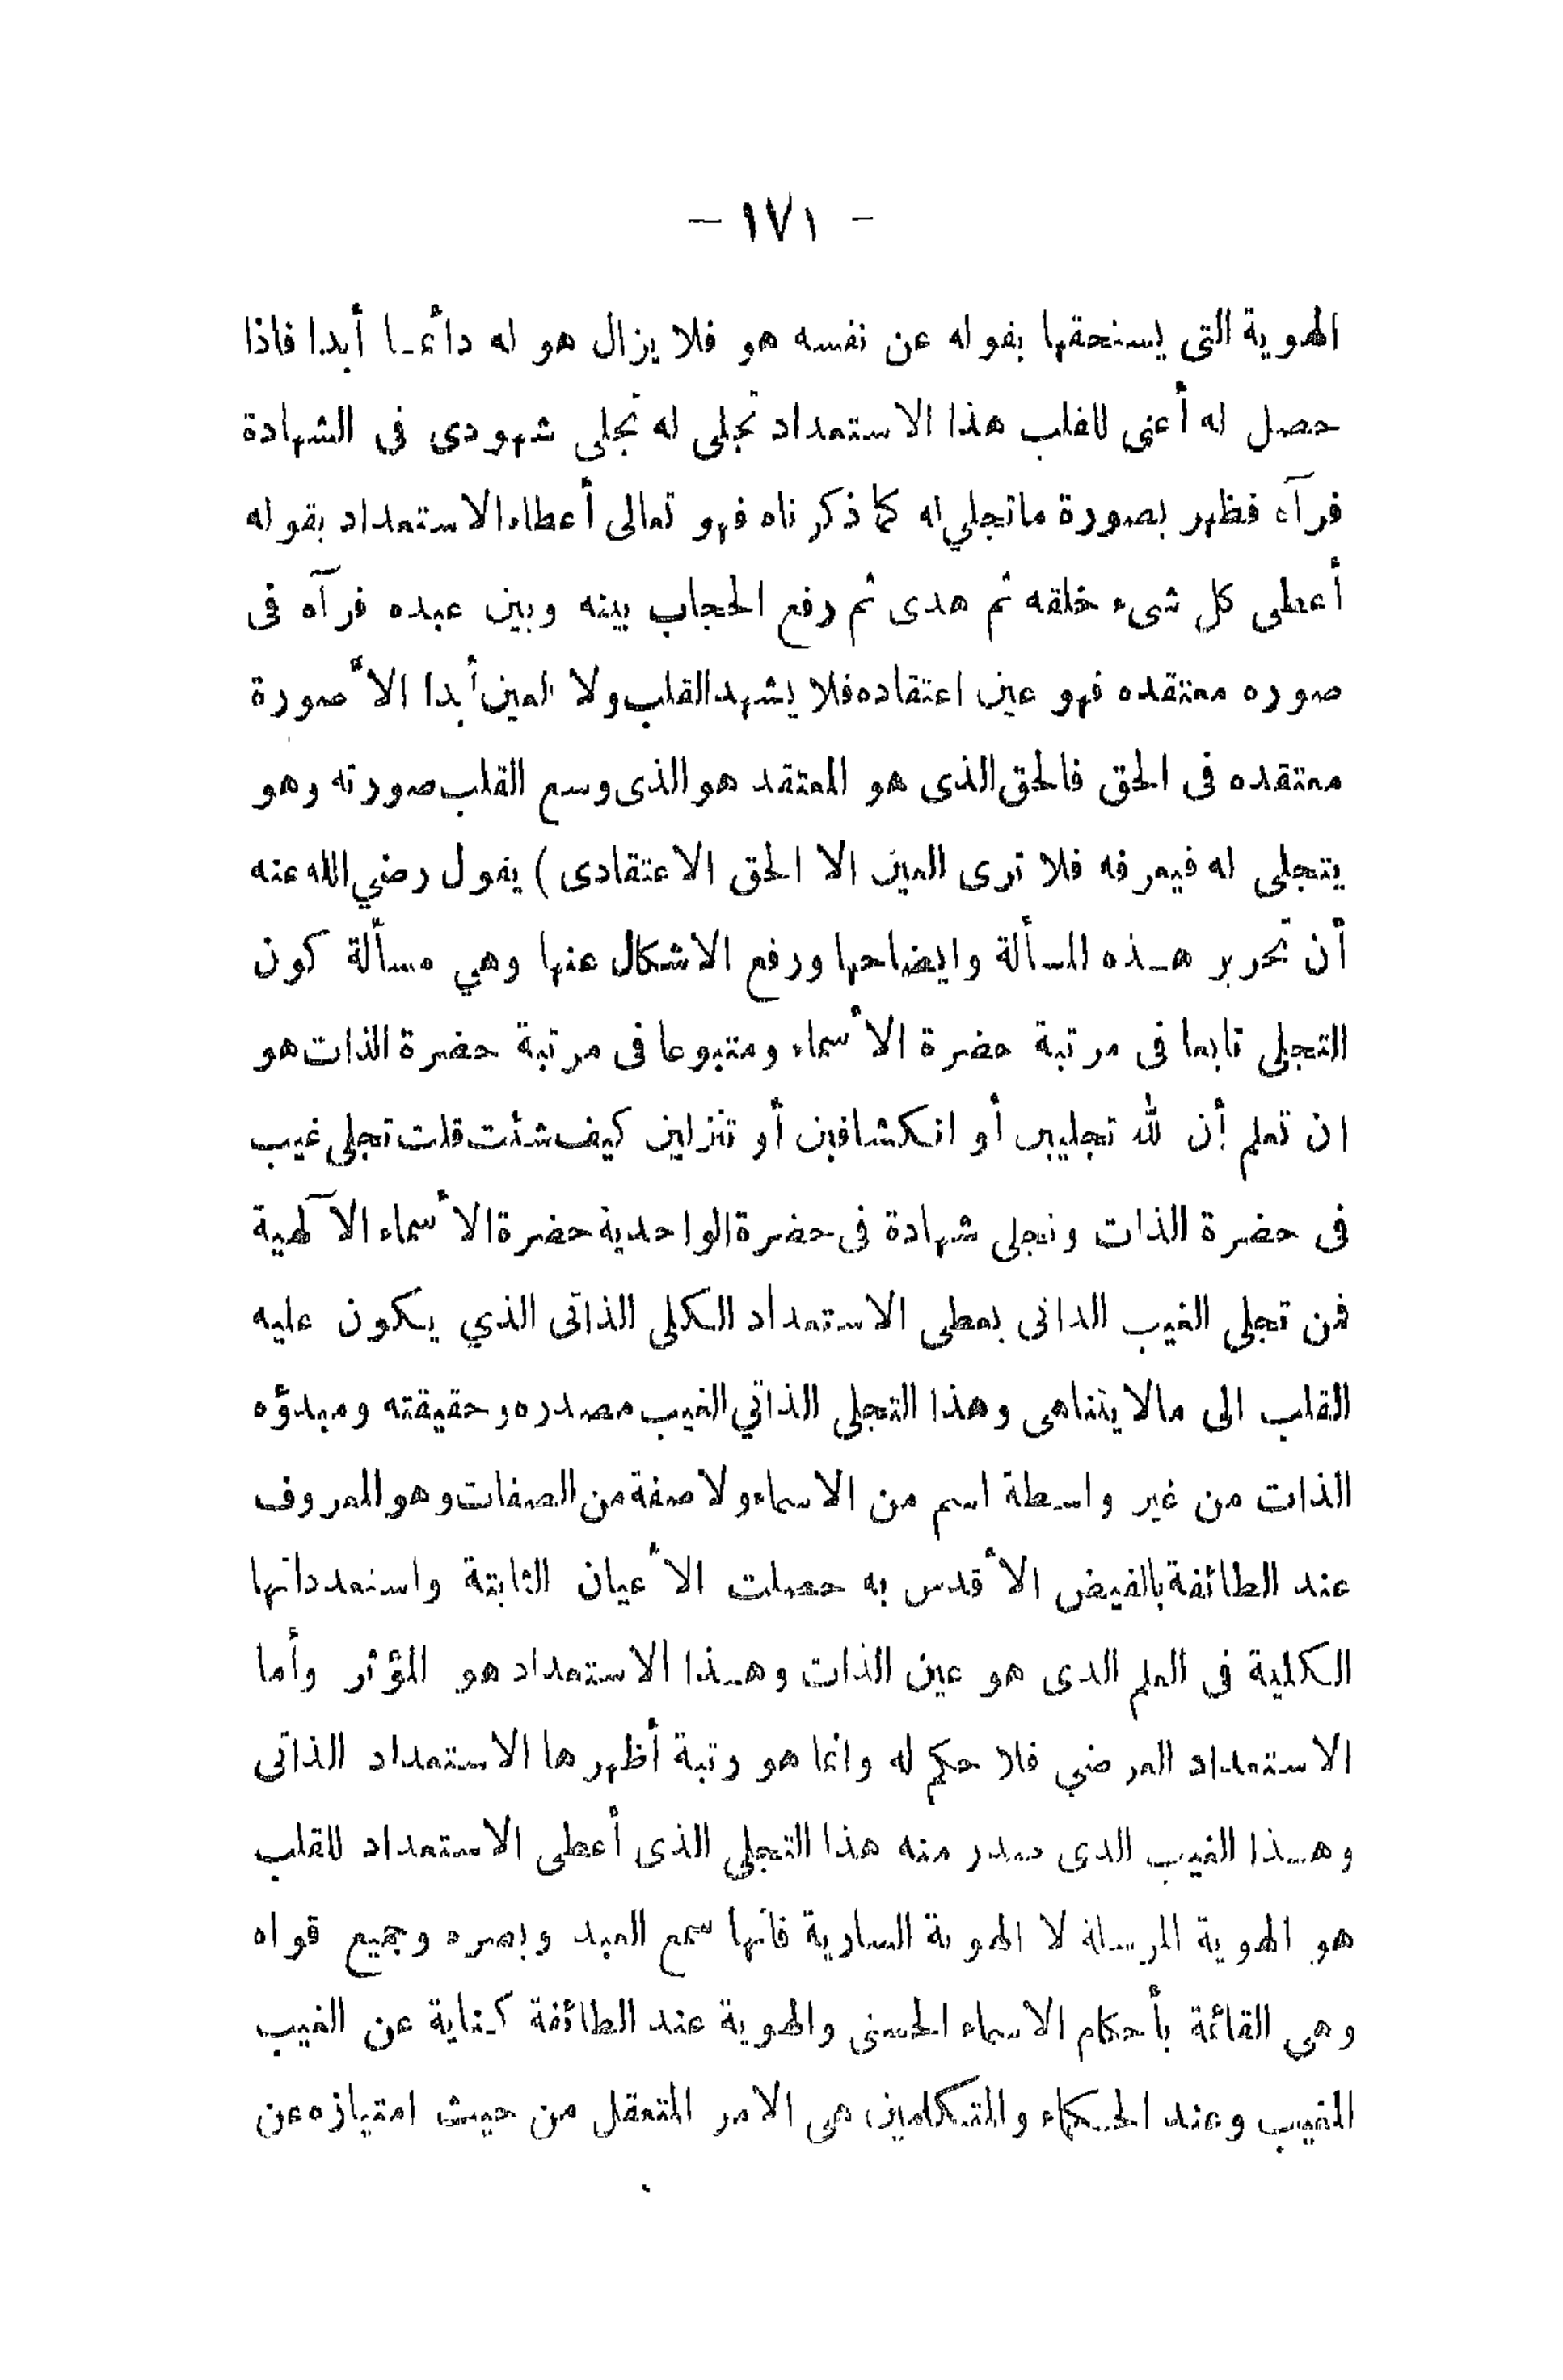 - ١٧١ -
الهوية التى يستحقها بقوله عن نفسه هو فلا يزال هو له دائما أبدا فاذا
حصل له أعنى للقلب هذا الاستعداد تجلى له تجلى شهودى فى الشهادة
فرآه فظهر بصورة ماتجلي له كما ذكرناه فهو تعالى أعطاه الاستعداد بقوله
أعطى كل شىء خلقه ثم هدى ثم رفع الحجاب بينه وبين عبده فرآه فى
صوره معتقده فهو عين اعتقاده فلا يشهد القلب ولا العين أبدا الأ صورة
معتقده فى الحق فالحق الذى هو المعتقد هو الذى وسع القلب صورته وهو
يتجلى له فيعرفه فلا ترى العين الا الحق الاعتقادى ) يقول رضي الله عنه
أن تحرير هذه المسألة وايضاحها ورفع الاشكال عنها وهي مسألة كون
التجلى تابعا فى مرتبة حضرة الأسماء ومتبوعا فى مرتبة حضرة الذات هو
ان تعلم أن لله تجليين أو انكشافين أو تنزلين كيف شئت قلت تجلى غيب
فى حضرة الذات وتجلى شهادة فى حضرة الواحدية حضرة الأسماء الآلهية
فمن تجلى الغيب الذاتى يعطى الاستعداد الكلى الذاتى الذي يكون عليه
القلب الى مالا يتناهى وهذا التجلى الذاتي الغيب مصدره وحقيقته ومبدؤه
الذات من غير واسطة اسم من الاسماء ولا صفة من الصفات وهو المعروف
عند الطائفة بالفيض الأقدس به حصلت الأعيان الثابتة واستعدداتها
الكلية فى العلم الذى هو عين الذات وهذا الاستعداد هو المؤثر وأما
الاستعداد العرضي فلا حكم له وانما هو رتبة أظهرها الاستعداد الذاتى
وهذا الغيب الذى صدر منه هذا التجلى الذى أعطى الاستعداد للقلب
هو الهوية المرسلة لا الهوية السارية فانها سمع العبد وبصره وجميع قواه
وهى القائمة بأحكام الاسماء الحسنى والهوية عند الطائفة كناية عن الغيب
المغيب وعند الحكماء والمتكلمين هى الامر المتعقل من حيث امتيازه عن